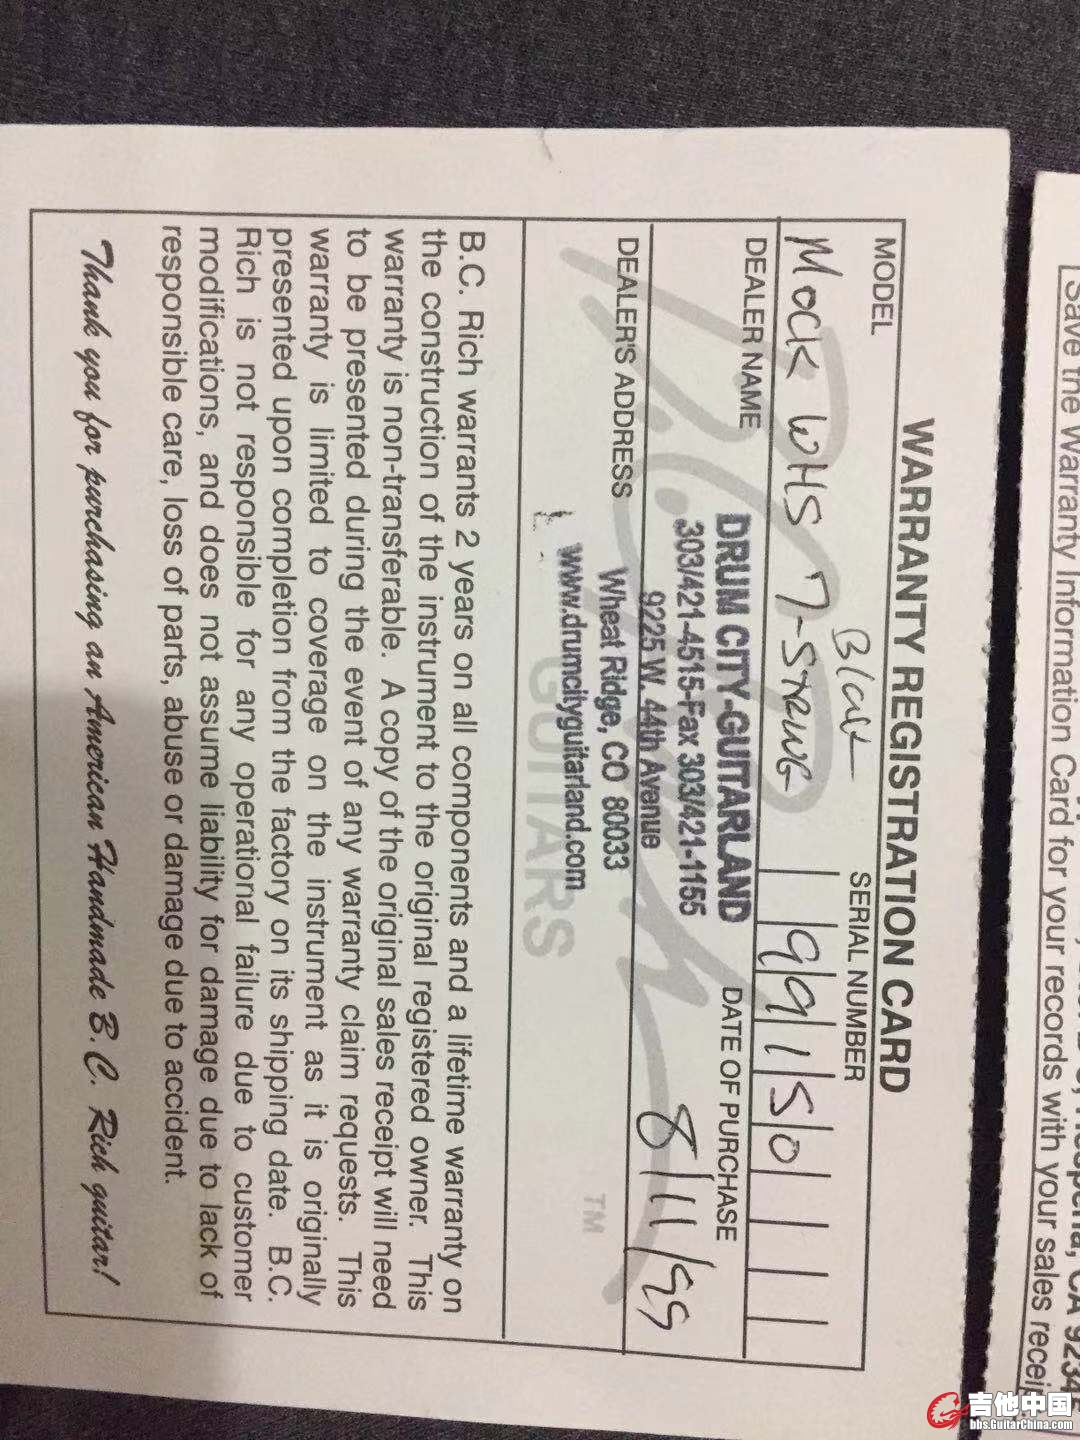 WARRANTY REGISTRATION CARD
MODEL
SERIAL NUMBER
Mock WHS 7-STRING
99150
DEALER NAME
DRUM CITY-GUITARLAND
303/421-4515-Fax 303/421-1155
9225 W. 44th Avenue
Wheat Ridge, CO 80033
www.drumcityguitarland.com
DATE OF PURCHASE
8/11/99
DEALER'S ADDRESS
B.C. Rich
GUITARS
TM
B.C. Rich warrants 2 years on all components and a lifetime warranty on
the construction of the instrument to the original registered owner. This
warranty is non-transferable. A copy of the original sales receipt will need
to be presented during the event of any warranty claim requests. This
warranty is limited to coverage on the instrument as it is originally
presented upon completion from the factory on its shipping date. B.C.
Rich is not responsible for any operational failure due to customer
modifications, and does not assume liability for damage due to lack of
responsible care, loss of parts, abuse or damage due to accident.
Thank you for purchasing an American Handmade B.C. Rich guitar!
CA 9234
Save the Warranty Information Card for your records with your sales recei
吉他中国
bbs.GuitarChina.com